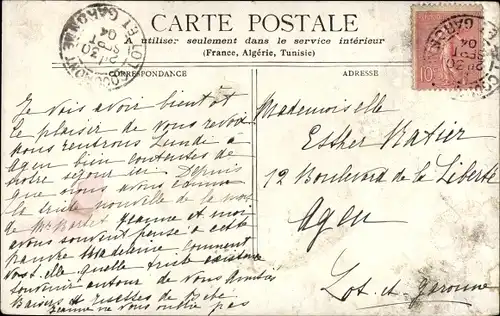 CARTE POSTALE
utiliser seulement dans le service intérieur
(France, Algérie, Tunisie)
CORRESPONDANCE
ADRESSE
LOT-ET-GARONNE
30
SEPT
04
10
Je vais avoir bientôt
le plaisir de vous revoir
nous rentrons Lundi à
Agen bien contentes de
notre séjour ici Depuis
que nous avons
la triste nouvelle de la mort
de Mr Jeanne et moi
avons souvent pensé à cette
pauvre Madeleine comment
va-t-elle quelle triste
souvenir autour de vous
Baisers et risettes de Bébé
Jeanne ne vous oublie pas
Mademoiselle
Esther Ratier
12 Boulevard de la Liberté
Agen
Lot-et-Garonne